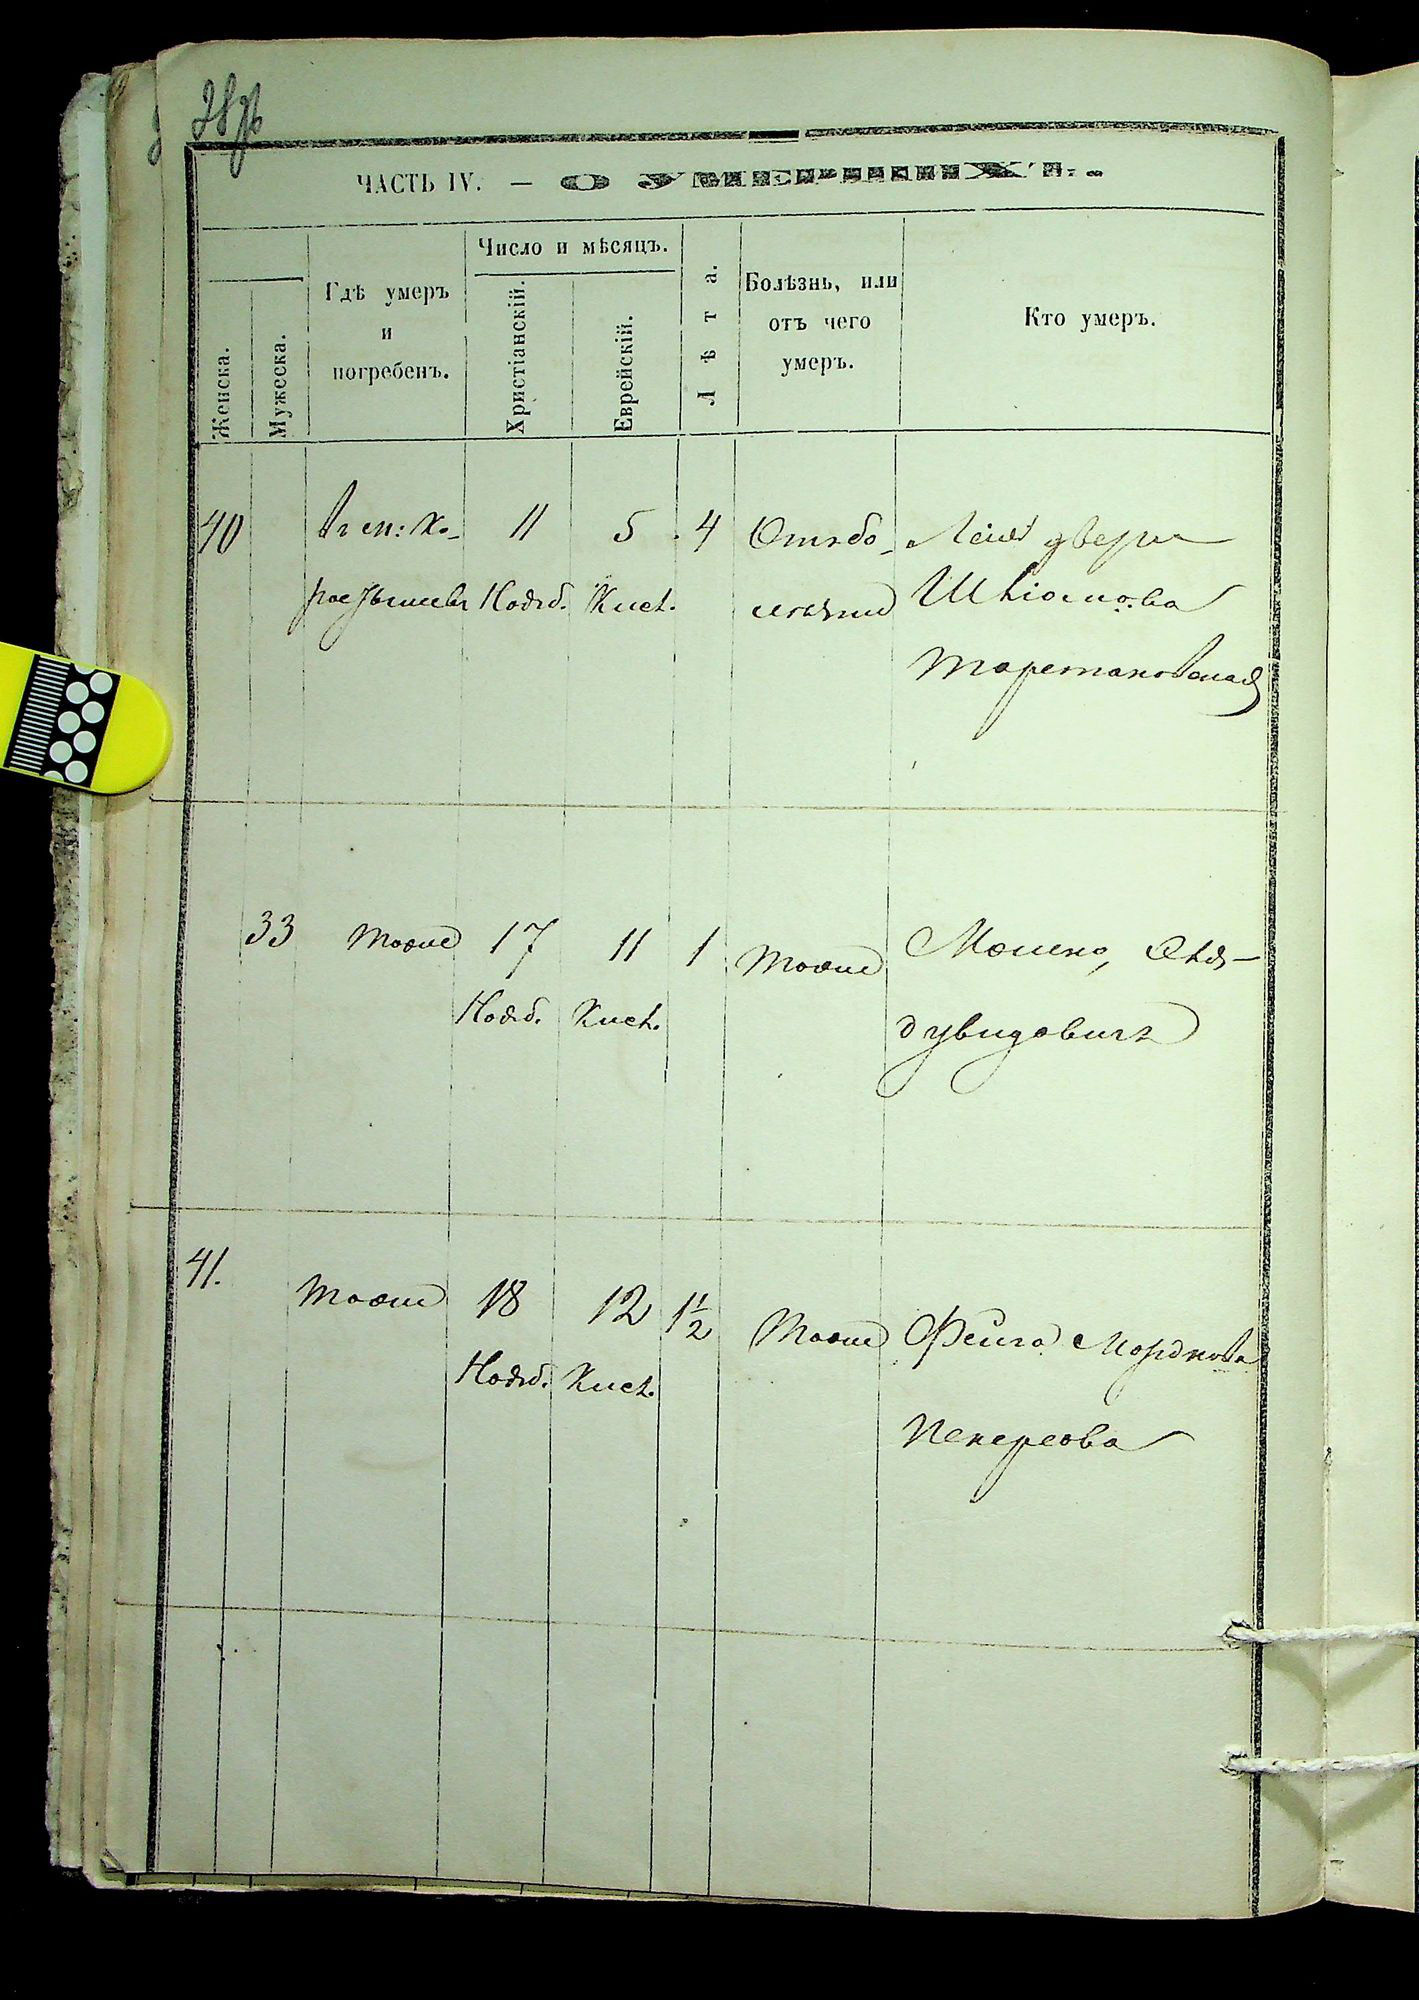 ЧАСТЬ IV. — О УМЕРШИХЪ.
Женска.
Мужеска.
Гдѣ умеръ
и
погребенъ.
Число и мѣсяцъ.
Христіанскій.
Еврейскій.
Лѣта.
Болѣзнь, или
отъ чего
умеръ.
Кто умеръ.
40
Вг м: Ко-
11
Нояб.
5
Кисл.
4
Отъ бо-
лѣзни
Шліомова
Таретановская
33
Тоже
17
Нояб.
11
Кисл.
1
Тоже
Мошко,
Дувидовичъ
41.
Тоже
18
Нояб.
12
Кисл.
1½
Тоже
Фейга Мордкова
Пекерова